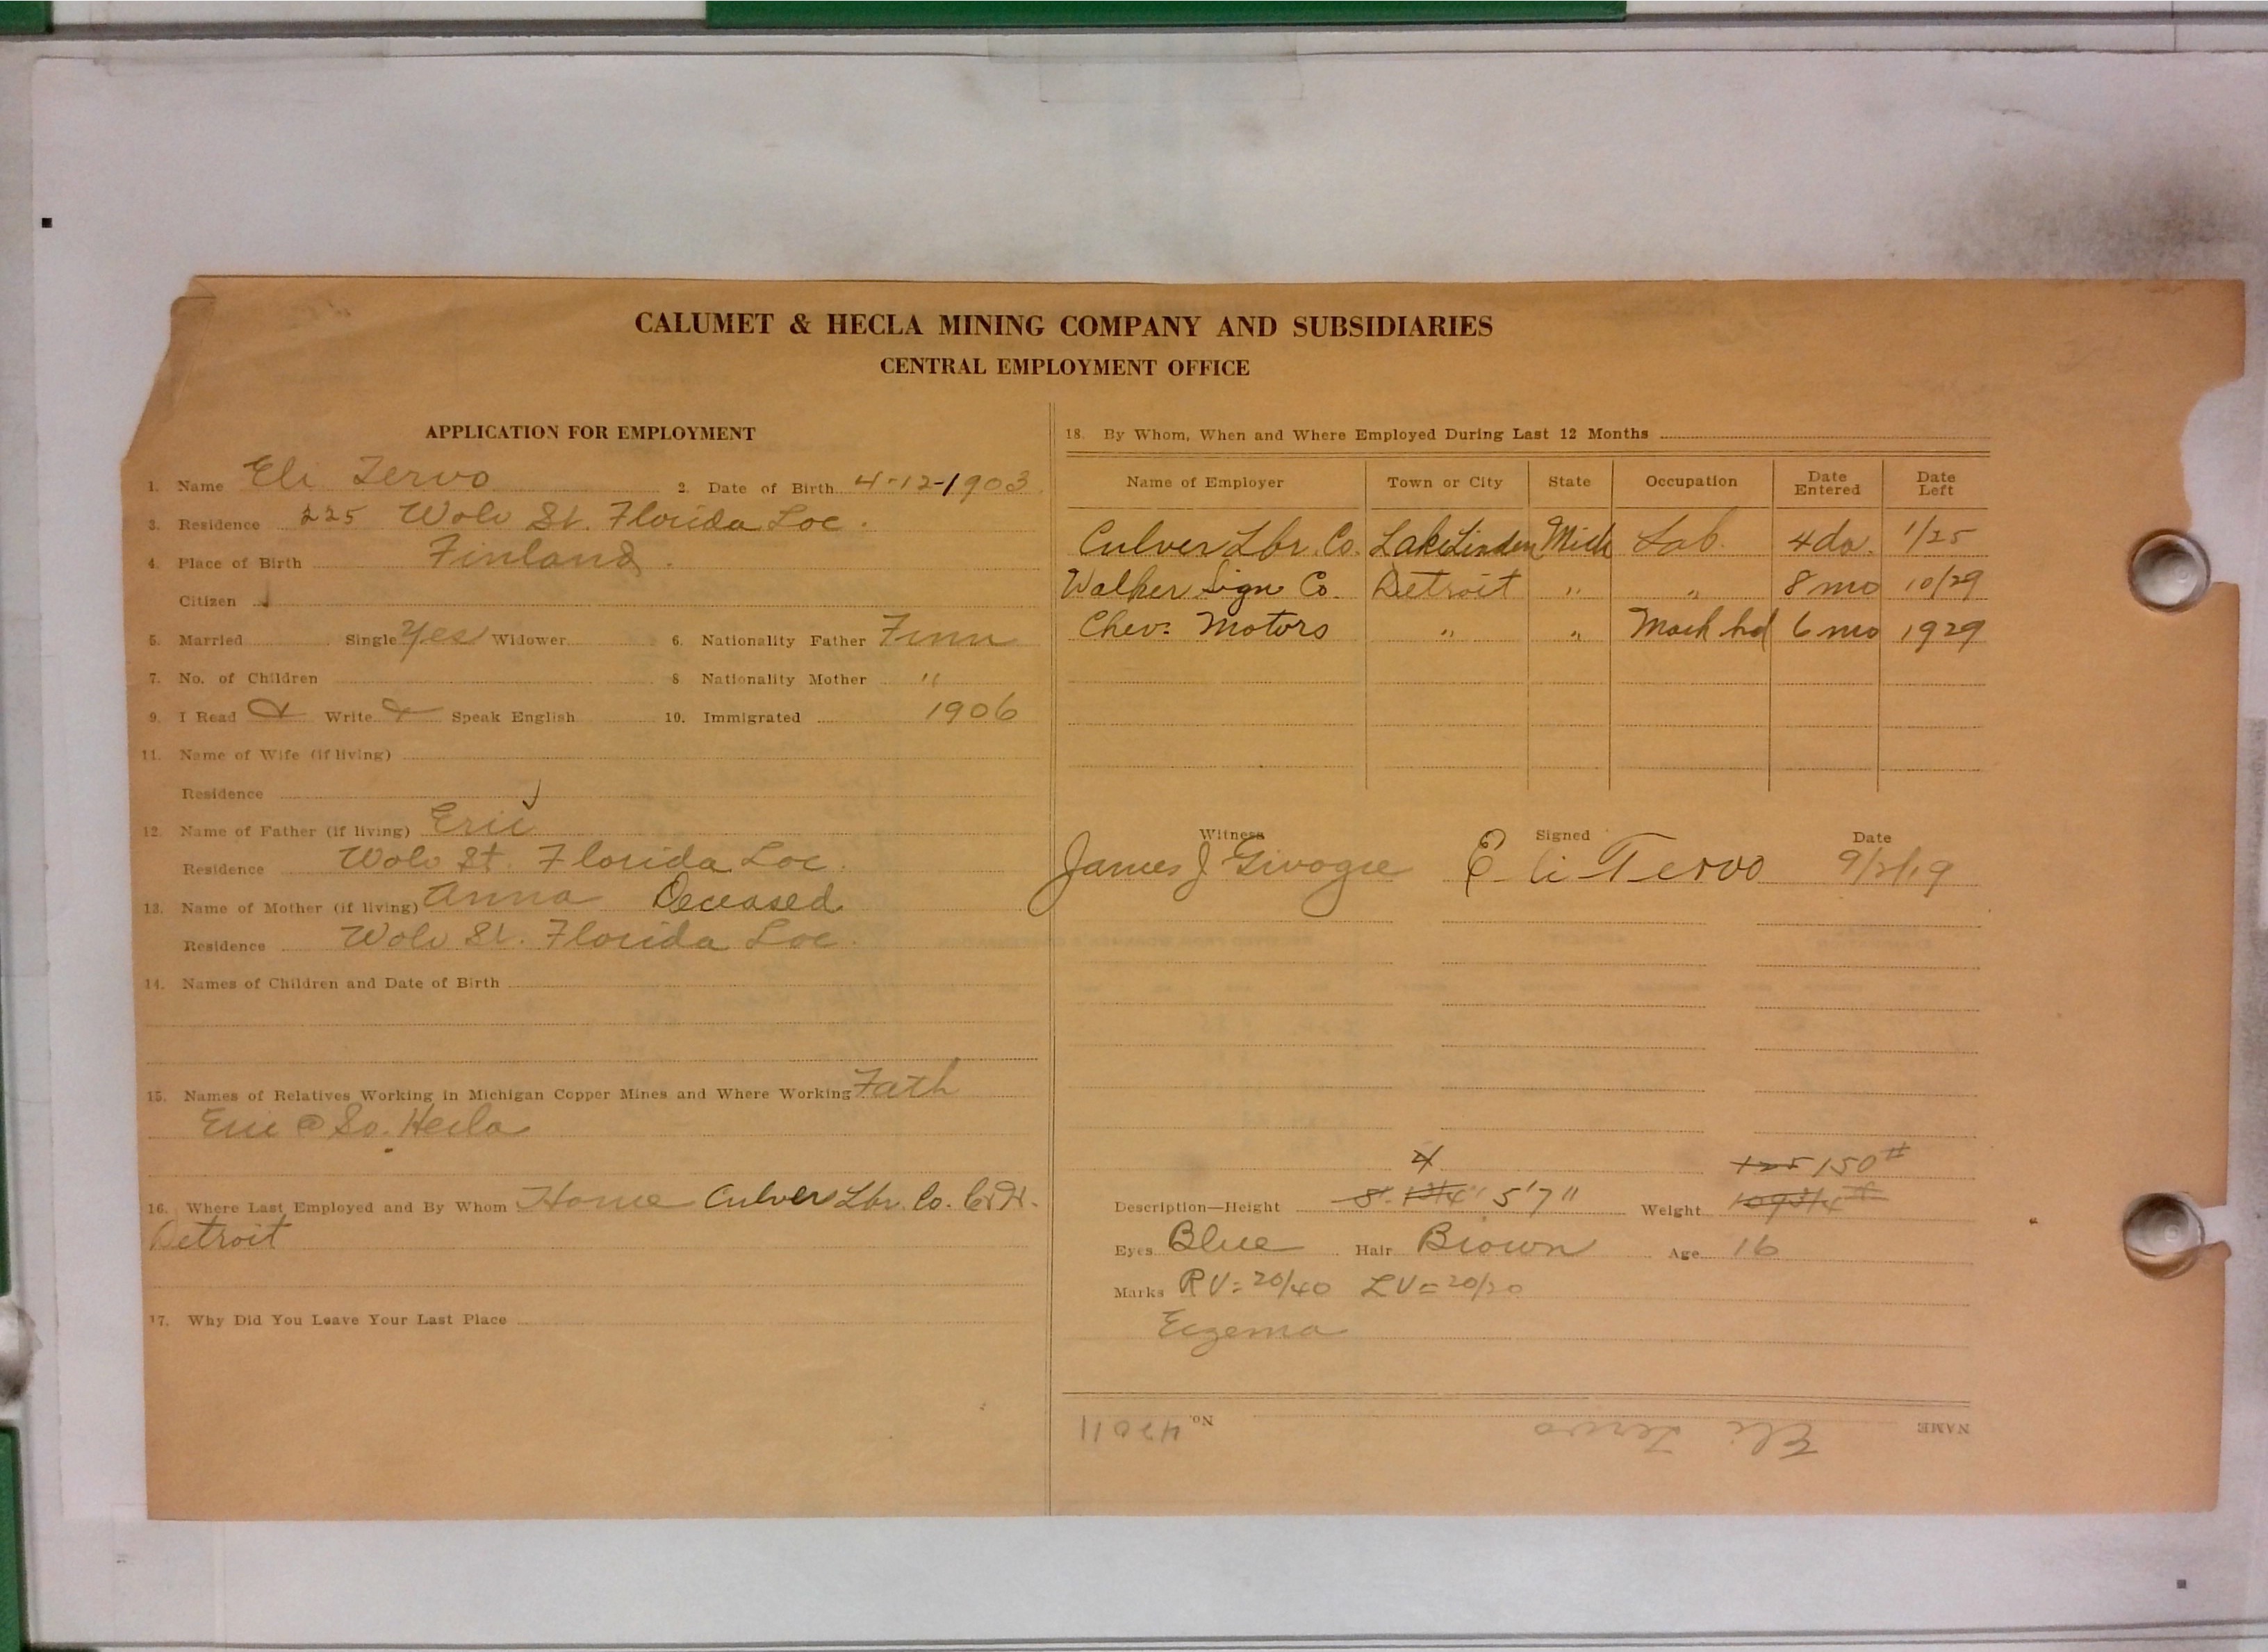 CALUMET & HECLA MINING COMPANY AND SUBSIDIARIES
CENTRAL EMPLOYMENT OFFICE
APPLICATION FOR EMPLOYMENT
1. Name Eli Tervo 2. Date of Birth 4-12-1903
3. Residence 225 Wolv St. Florida Loc.
4. Place of Birth Finland.
Citizen
5. Married Single Yes Widower 6. Nationality Father Finn
7. No. of Children 8 Nationality Mother "
9. I Read Write Speak English 10. Immigrated 1906
11. Name of Wife (if living)
Residence
12. Name of Father (if living) Eric
Residence Wolv St. Florida Loc.
13. Name of Mother (if living) Anna Deceased
Residence Wolv St. Florida Loc.
14. Names of Children and Date of Birth
15. Names of Relatives Working in Michigan Copper Mines and Where Working Fath
Eric @ So. Hecla
16. Where Last Employed and By Whom Home Culver Lbr. Co. C&H.
Detroit
17. Why Did You Leave Your Last Place
18. By Whom, When and Where Employed During Last 12 Months
Name of Employer Town or City State Occupation Date Entered Date Left
Culver Lbr. Co. Lake Linden Mich Lab. 4da. 1/25
Walker Sign Co. Detroit " " 8 mo 10/29
Chev. Motors " " Mach hd 6 mo 1929
Witness Signed Date
James J Eli Tervo
125 150#
Description—Height 5'7" Weight 109 3/4#
Eyes Blue Hair Brown Age 16
Marks RV=20/40 LV=20/20
Eczema
NAME Eli Tervo No. 42011